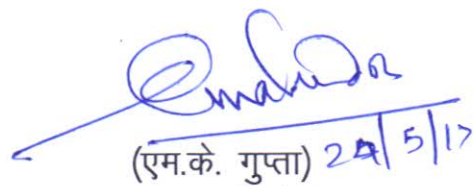 (एम.के. गुप्ता) 24/5/17